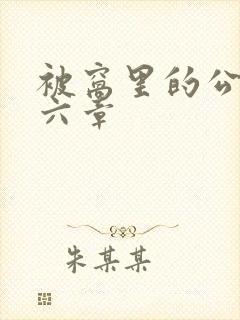 被窝里的公
六章
朱某某